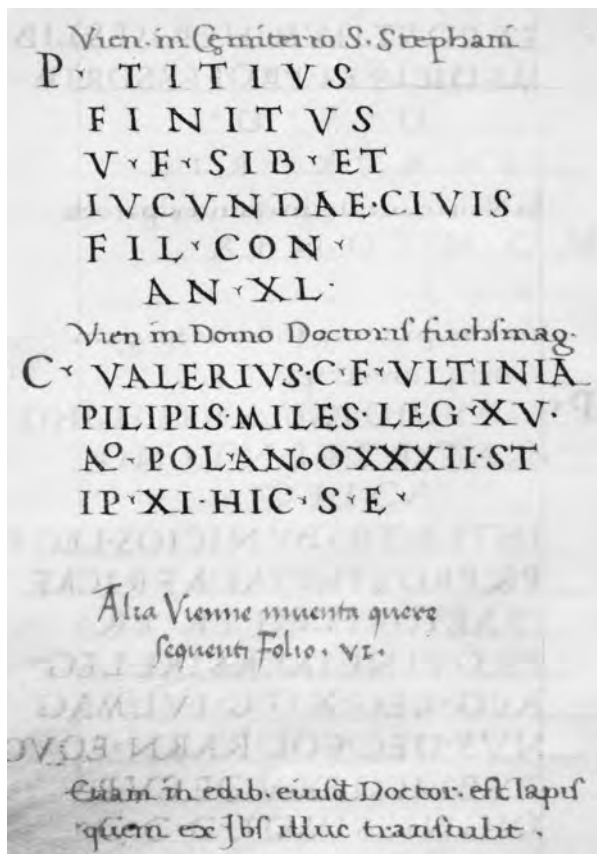 Vien. in Cęmiterio S. Stephani
P · TITIVS
FINITVS
V · F · SIB · ET
IVCVNDAE · CIVIS
FIL · CON ·
AN · XL ·
Vien in Domo Doctoris fuchsmag.
C · VALERIVS · C · F · VLTINIA
PILIPIS · MILES · LEG · XV ·
Aº · POL · ANoO XXXII · ST
IP · XI · HIC · S · E ·
Alia Vienne inuenta quere
sequenti Folio · VI ·
Etiam in edib. eiusd Doctor. est lapis
quem ex Jbs illuc transtulit .